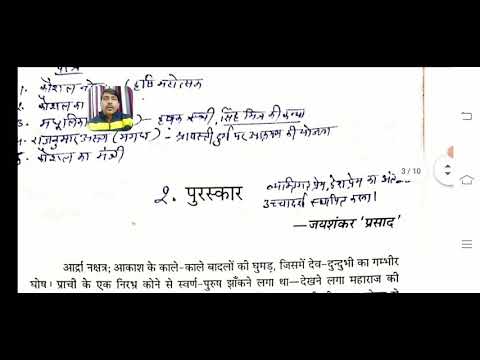 पात्र
१. कौशल नरेश (कृषि महोत्सव
२. कौशल का
३. मधूलिका) - कृषक कन्या, सिंह मित्र की कन्या
राजकुमार अरुण (मगध) - श्रावस्ती दुर्ग पर आक्रमण की योजना
५. कौशल का मंत्री
3 / 10
२. पुरस्कार
व्यक्तिगत प्रेम, देशप्रेम का अंत
उच्चादर्श स्थापित करना।
—जयशंकर 'प्रसाद'
आर्द्रा नक्षत्र; आकाश के काले-काले बादलों की घुमड़, जिसमें देव-दुन्दुभी का गम्भीर
घोष। प्राची के एक निरभ्र कोने से स्वर्ण-पुरुष झाँकने लगा था—देखने लगा महाराज की